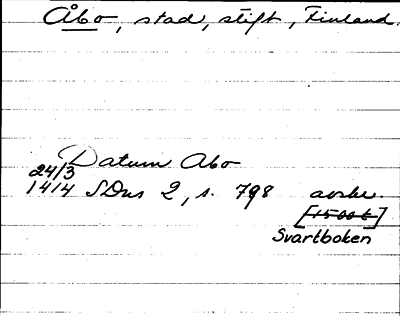 Åbo, stad, stift, Finland.
Datum Abo
24/3
1414 SDns 2, s. 798 avskr.
[1500 t]
Svartboken